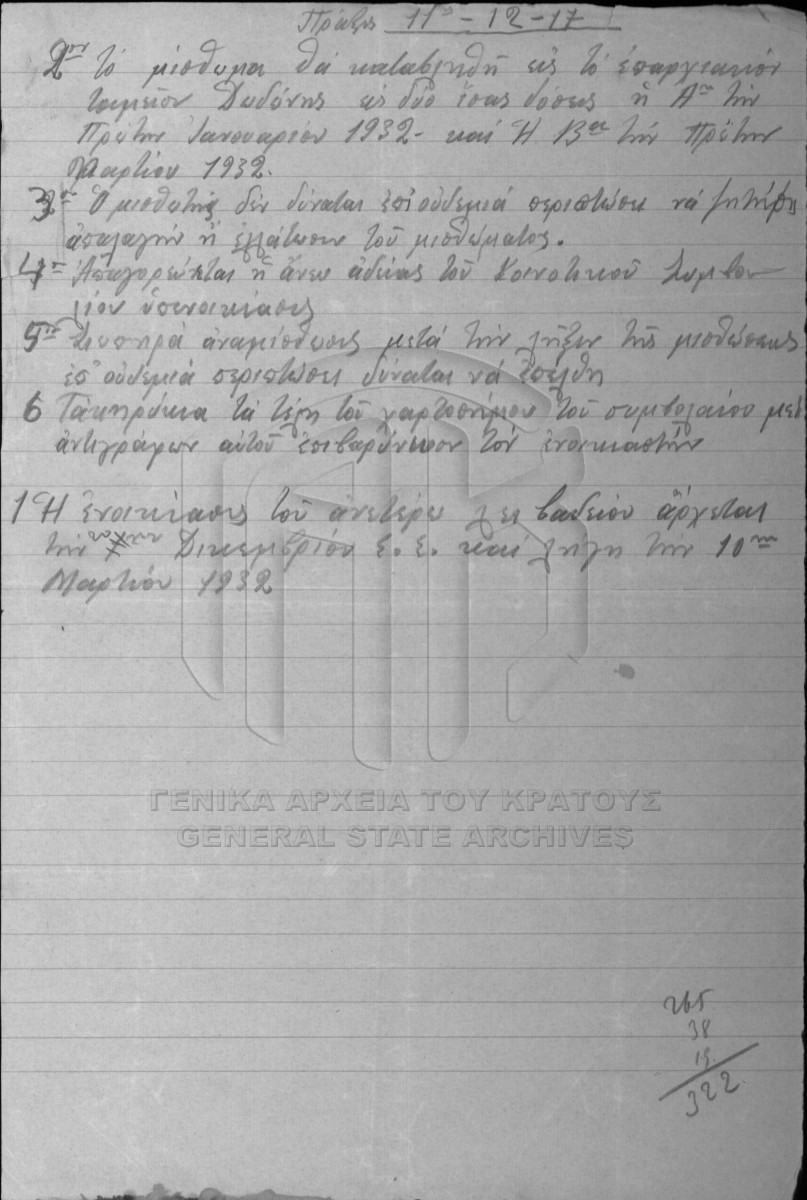 Πράξις 11 - 12 - 17
2ον τό μίσθωμα θά καταβληθῆ εἰς τό ἐπαρχιακόν
ταμεῖον Δωδώνης εἰς δύο ἴσας δόσεις ἡ Αη τήν
Πρώτην Ἰανουαρίου 1932 - καί Ἡ Βα τήν Πρώτην
Μαρτίου 1932.
3ον Ὁ μισθωτής δέν δύναται ἐπ' οὐδεμιά περιπτώσει νά ζητήσῃ
ἀπαλαγήν ἤ ἐλλάτωσιν τοῦ μισθώματος.
4ον Ἀπαγορεύεται ἡ ἄνευ ἀδείας τοῦ Κοινοτικοῦ Συμβου
λίου ὑπενοικίασις
5ον Σιωπηρά ἀναμίσθωσις μετά τήν λῆξιν τῆς μισθώσεως
ἐπ' οὐδεμιά περιπτώσει δύναται νά ἐπέλθη
6 Τά κηρύκια τά τέλη τοῦ χαρτοσήμου τοῦ συμβολαίου μετ'
ἀντιγράφων αὐτοῦ ἐπιβαρύνουσον τόν ἐνοικιαστήν
1 Ἡ ἐνοικίασις τοῦ ἀνωτέρω λειβαδείου ἄρχεται
τήν Δικεμβρίου ἐ. ἐ. καί λήγη τήν 10ην
Μαρτίου 1932
ΓΕΝΙΚΑ ΑΡΧΕΙΑ ΤΟΥ ΚΡΑΤΟΥΣ
GENERAL STATE ARCHIVES
265
38
19
322